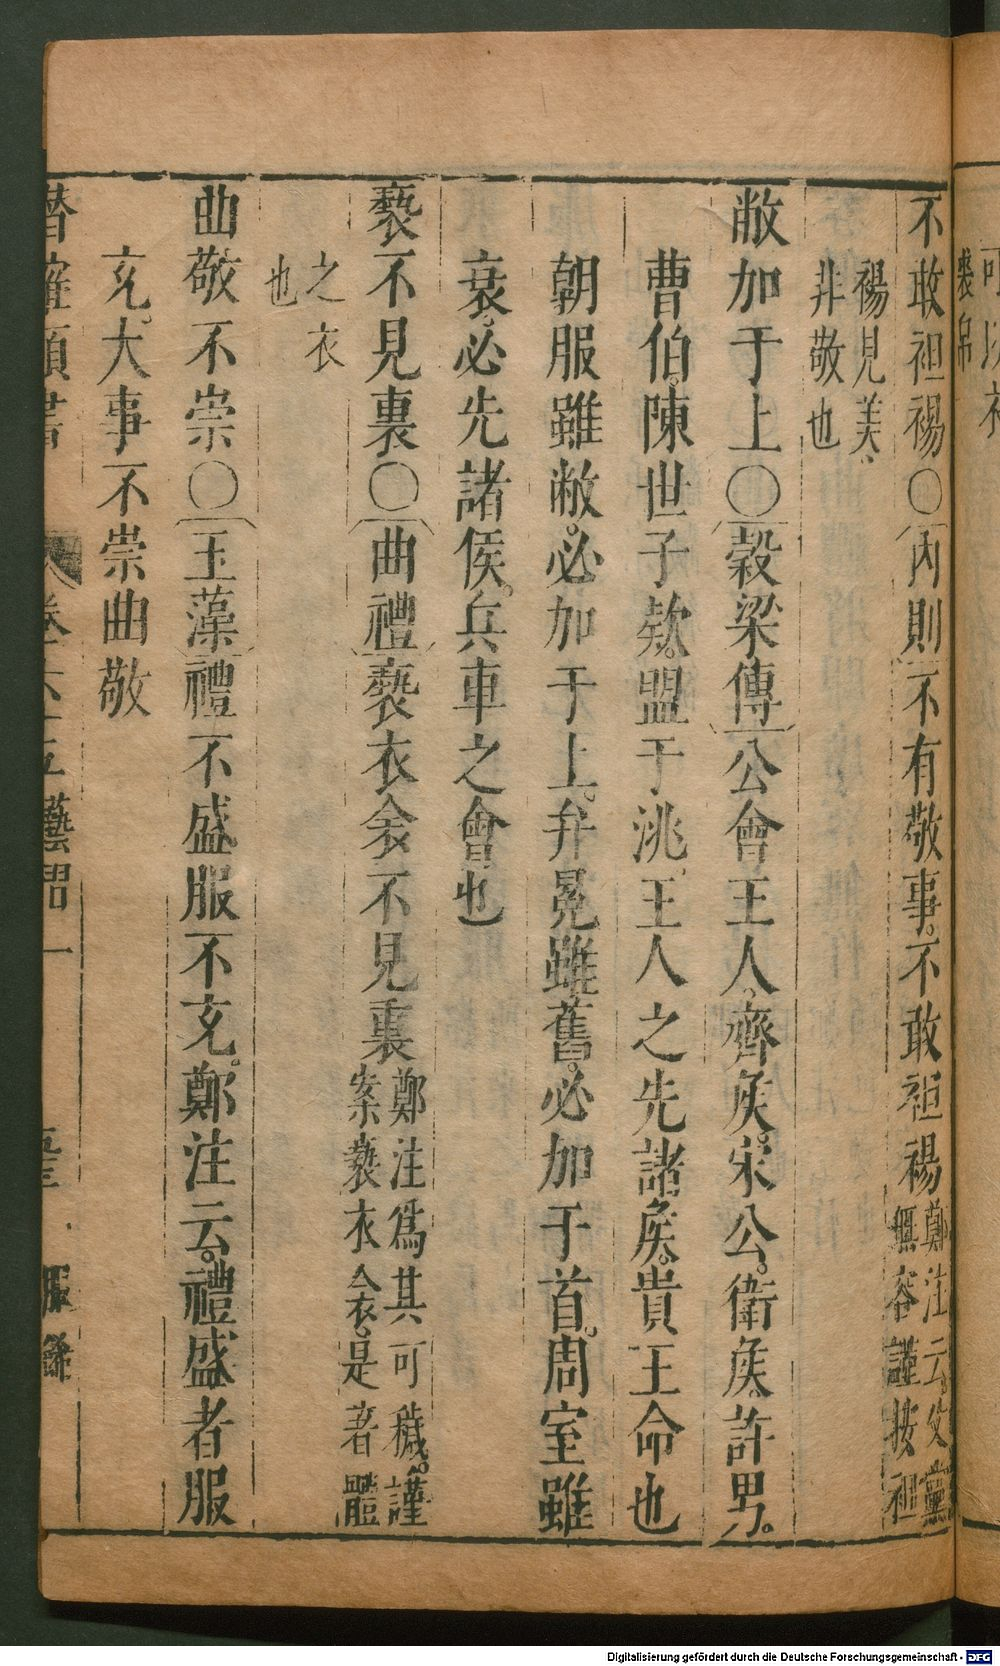 不敢袒裼○內則不有敬事。不敢袒裼鄭注云父黨無容謹按袒
裼見美、非敬也
敝加于上○穀梁傳公會王人。齊矦。宋公。衛矦。許男。
曹伯。陳世子欵。盟于洮。王人之先諸矦。貴王命也
朝服雖敝。必加于上。弁冕雖舊。必加于首。周室雖
衰。必先諸侯。兵車之會也
褻不見裏○曲禮褻衣衾不見裏鄭注爲其可穢。謹案褻衣衾。是著體
之衣也
曲敬不崇○玉藻禮不盛服不充。鄭注云。禮盛者服
充。大事不崇曲敬
卷六 五 藝習一 服餙
Digitalisierung gefördert durch die Deutsche Forschungsgemeinschaft - DFG